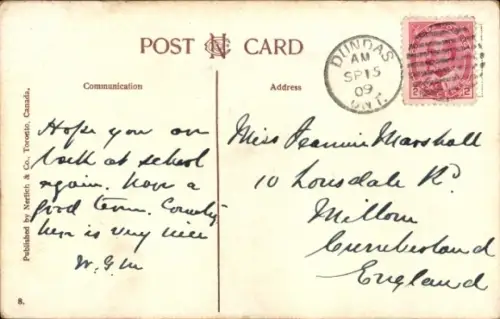 POST CARD
Communication
Address
DUNDAS
AM
SP 15
09
ONT.
2 2
Hope you are
back at school
again. have a
good term. Country
here is very nice
W.G.M
Miss Jeannie Marshall
10 Lonsdale Rd.
Millom
Cumberland
England
Published by Nerlich & Co. Toronto, Canada.
8.